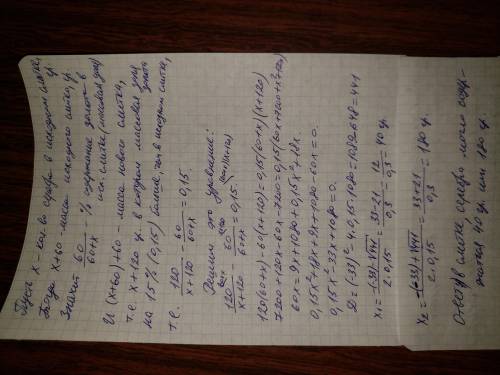 Пусть x - кол-во серебра в исходном слитке,
Тогда x+60 - масса исходного слитка, гр.
Значит 60/(60+x) - % содержание золота в
исх. слитке (массовая доля)
И (x+60)+60 - масса нового слитка,
т.е. x+120 гр. в котором массовая доля золота
на 15% (0,15) больше, чем в исходном слитке,
т.е. 120/(x+120) - 60/(60+x) = 0,15
Решим это уравнение:
120/(x+120) - 60/(60+x) = 0,15
120(60+x)-60(x+120)=0,15(60+x)(x+120)
7200+120x-60x-7200=0,15(60x+7200+x²+120x)
60x=9x+1080+0,15x²+18x
0,15x²+18x+9x+1080-60x=0
0,15x²-33x+1080=0.
D=(-33)²-4·0,15·1080=1089-648=441
x₁=(-(-33)-√441)/(2·0,15)=(33-21)/0,3=12/0,3=40 гр.
x₂=(-(-33)+√441)/(2·0,15)=(33+21)/0,3=180 гр.
Ответ: в слитке, серебра могло содер-
жаться 40 гр. или 180 гр.